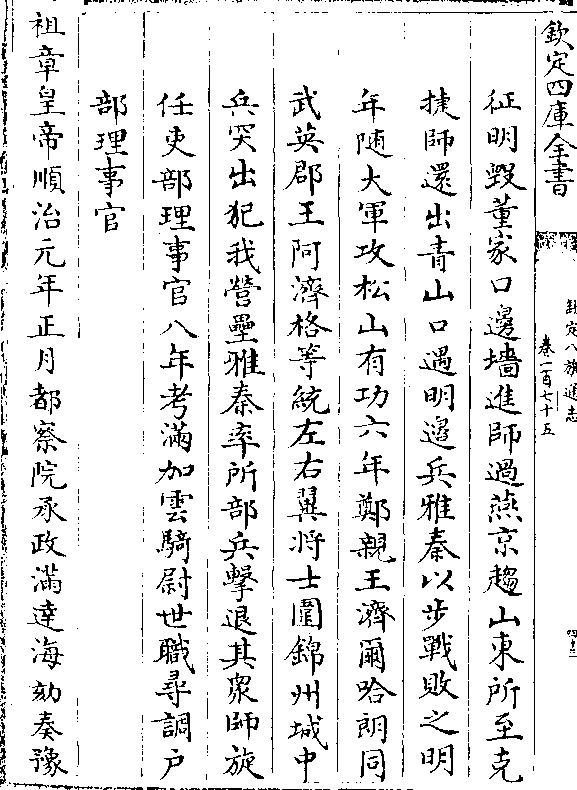 欽定四庫全書
欽定八旗通志
卷一百七十五
四十三
征明毀董家口邊墻進師過燕京趨山東所至克
捷師還出青山口遇明邊兵雅秦以步戰敗之明
年随大軍攻松山有功六年鄭親王濟爾哈朗同
武英郡王阿濟格等統左右翼将士圍錦州城中
兵突出犯我營壘雅秦率所部兵擊退其衆師旋
任吏部理事官八年考滿加雲騎尉世職尋調户
部理事官
祖章皇帝順治元年正月都察院承政滿達海劾奏豫